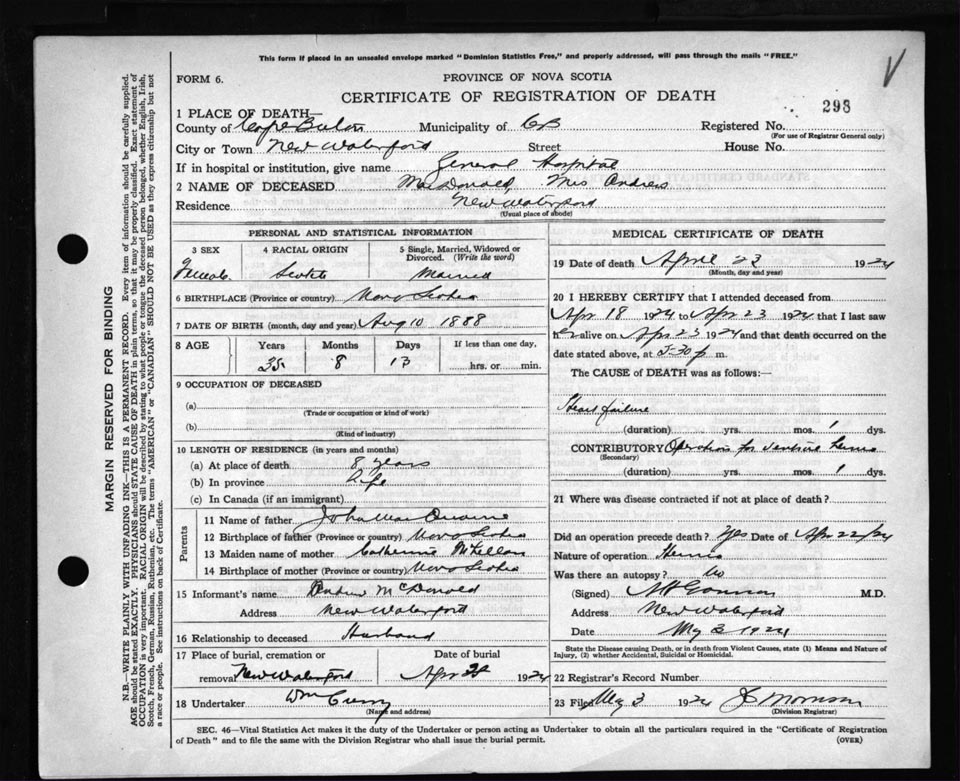 This form if placed in an unsealed envelope marked "Dominion Statistics Free," and properly addressed, will pass through the mails "FREE."
FORM 6.
PROVINCE OF NOVA SCOTIA
CERTIFICATE OF REGISTRATION OF DEATH
298
1 PLACE OF DEATH—
County of Cape Breton Municipality of CB Registered No.
(For use of Registrar General only)
City or Town New Waterford Street House No.
If in hospital or institution, give name General Hospital
2 NAME OF DECEASED MacDonald, Mrs Andrew
Residence New Waterford
(Usual place of abode)
PERSONAL AND STATISTICAL INFORMATION
3 SEX 4 RACIAL ORIGIN 5 Single, Married, Widowed or Divorced. (Write the word)
Female Scotch Married
6 BIRTHPLACE (Province or country) Nova Scotia
7 DATE OF BIRTH (month, day and year) Aug 10 1888
8 AGE Years Months Days If less than one day,
35 8 13 hrs. or min.
9 OCCUPATION OF DECEASED
(a)
(Trade or occupation or kind of work)
(b)
(Kind of industry)
10 LENGTH OF RESIDENCE (in years and months)
(a) At place of death 8 years
(b) In province Life
(c) In Canada (if an immigrant)
Parents
11 Name of father John Mac
12 Birthplace of father (Province or country) Nova Scotia
13 Maiden name of mother Catherine McLellan
14 Birthplace of mother (Province or country) Nova Scotia
15 Informant's name Andrew McDonald
Address New Waterford
16 Relationship to deceased Husband
17 Place of burial, cremation or Date of burial
removal New Waterford Apr 1924
18 Undertaker Wm Curry
(Name and address)
MEDICAL CERTIFICATE OF DEATH
19 Date of death April 23 1924
(Month, day and year)
20 I HEREBY CERTIFY that I attended deceased from
Apr 18 1924 to Apr 23 1924 that I last saw
her alive on Apr 23 1924 and that death occurred on the
date stated above, at 5-30 p m.
The CAUSE of DEATH was as follows:—
Heart failure
(duration) yrs. mos. 1 dys.
CONTRIBUTORY Operation for ventral hernia
(Secondary)
(duration) yrs. mos. 1 dys.
21 Where was disease contracted if not at place of death?
Did an operation precede death? Yes Date of Apr 22/24
Nature of operation Hernia
Was there an autopsy? No
(Signed) M.D.
Address New Waterford
Date May 3 1924
State the Disease causing Death, or in death from Violent Causes, state (1) Means and Nature of Injury, (2) whether Accidental, Suicidal or Homicidal.
22 Registrar's Record Number
23 Filed May 3 1924 J C Morrison
(Division Registrar)
SEC. 46—Vital Statistics Act makes it the duty of the Undertaker or person acting as Undertaker to obtain all the particulars required in the "Certificate of Registration
of Death" and to file the same with the Division Registrar who shall issue the burial permit.
(OVER)
MARGIN RESERVED FOR BINDING
N.B.—WRITE PLAINLY WITH UNFADING INK—THIS IS A PERMANENT RECORD. Every item of information should be carefully supplied.
AGE should be stated EXACTLY. PHYSICIANS should STATE CAUSE OF DEATH in plain terms, so that it may be properly classified. Exact statement of
OCCUPATION is very important. RACIAL ORIGIN will be described by stating to what people or tongue the deceased person belonged, whether English, Irish,
Scotch, French, German, Russian, Ruthenian, etc. The terms "AMERICAN" or "CANADIAN" SHOULD NOT BE USED as they express citizenship but not
a race or people. See instructions on back of Certificate.